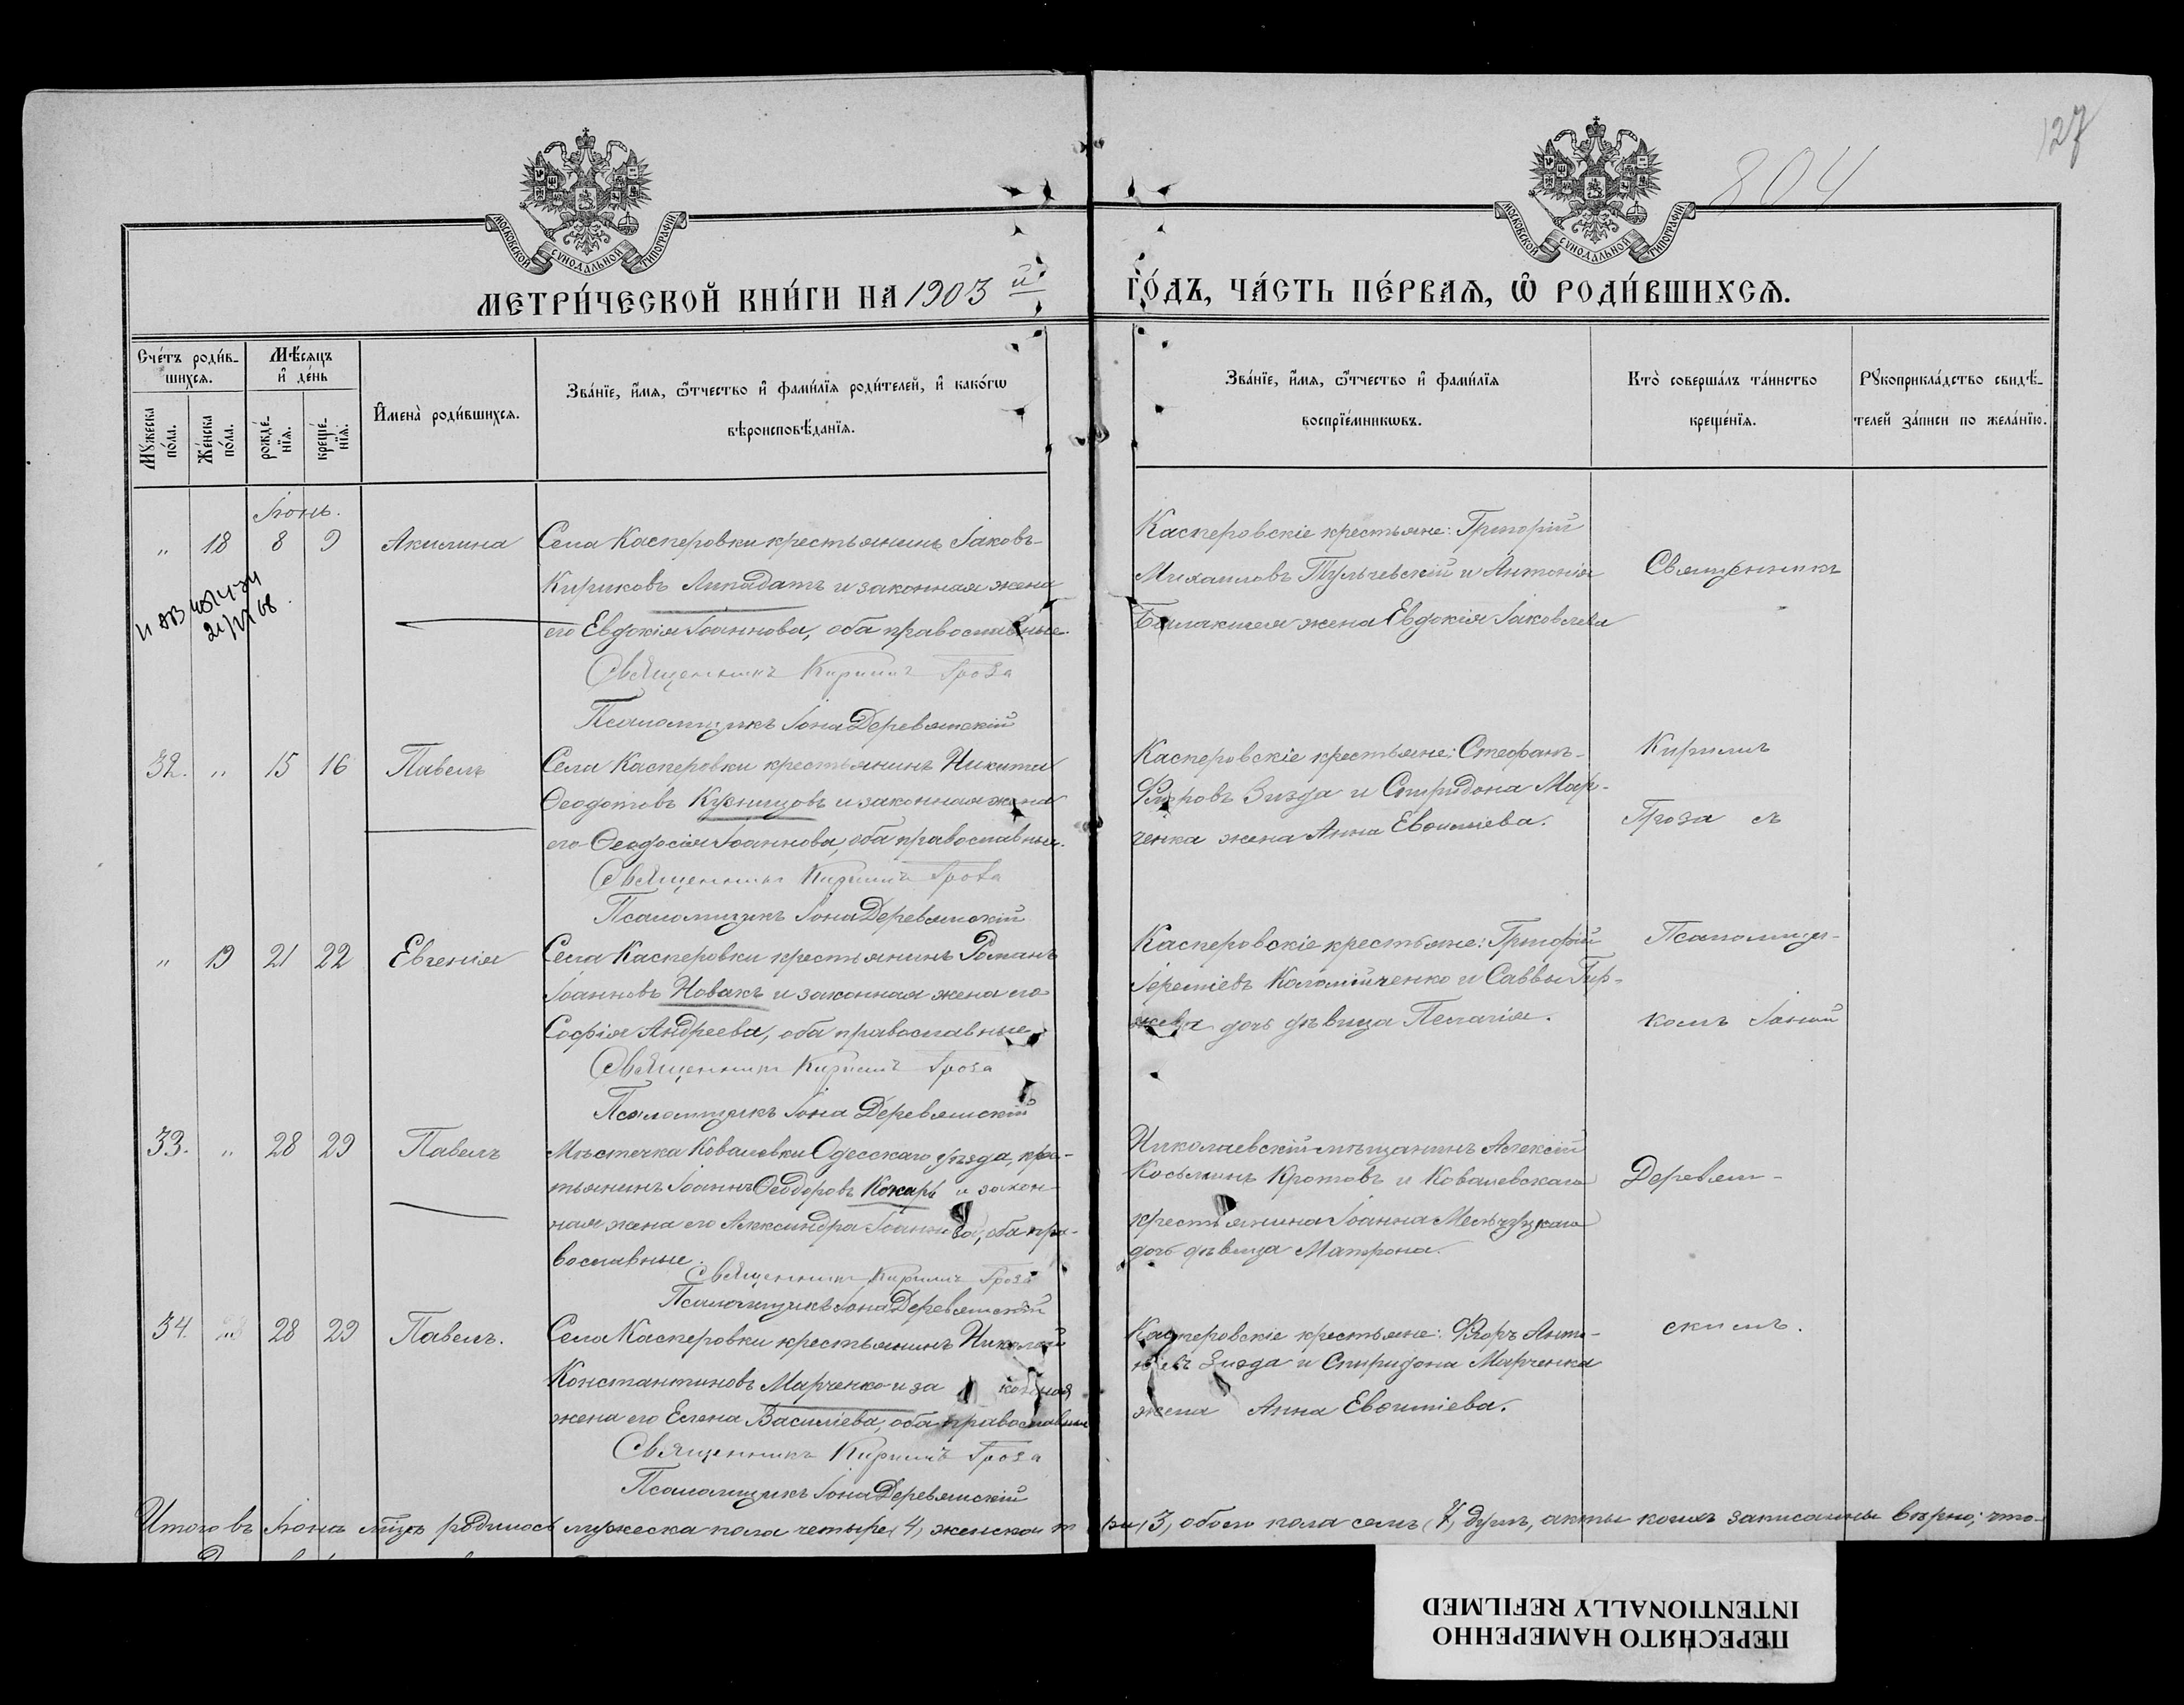 127
804
МОСКОВСКОЙ СУНОДАЛЬНОЙ ТИПОГРАФІИ
МОСКОВСКОЙ СУНОДАЛЬНОЙ ТИПОГРАФІИ
МЕТРИ́ЧЕСКОЙ КНИ́ГИ НА 1903 й
ГО́ДЪ, ЧА́СТЬ ПЕ́РВАѦ, Ѡ РОДИ́ВШИХСѦ.
Сче́тъ роди́в-
шихсѧ.
Мꙋ́жеска по́ла.
Же́нска по́ла.
Мѣ́сѧцъ и҆ де́нь
рожде́-нїѧ.
креще́-нїѧ.
И҆мена̀ роди́вшихсѧ.
Зва́нїе, и҆́мѧ, ѻ҆́тчество и҆ фами́лїѧ роди́телей, и҆ како́гѡ
вѣроисповѣ́данїѧ.
Зва́нїе, и҆́мѧ, ѻ҆́тчество и҆ фами́лїѧ
воспрїе́мникѡвъ.
Кто̀ соверша́лъ та́инство
креще́нїѧ.
Рꙋкоприкла́дство свидѣ́-
телей за́писи по жела́нїю.
Іюнь.
" 18 8 9 Акилина
Села Касперовки крестьянинъ Іаковъ
Кириковъ Липадатъ и законная жена
его Евдокія Іоаннова, оба православные.
Священникъ Кириллъ Гроза
Псаломщикъ Іона Деревянскій
Касперовскіе крестьяне: Григорій
Михаиловъ Тульчевскій и Антонія
жена Евдокія Іаковлева
Священникъ
32. " 15 16 Павелъ
Села Касперовки крестьянинъ Никита
Ѳеодотовъ Кузнецовъ и законная жена
его Ѳеодосія Іоаннова, оба православные.
Священникъ Кириллъ Гроза
Псаломщикъ Іона Деревянскій
Касперовскіе крестьяне: Стефанъ
Флоровъ Зизда и Спиридона Мар-
ченка жена Анна Евѳиміева.
Кириллъ
Гроза съ
" 19 21 22 Евгенія
Села Касперовки крестьянинъ Романъ
Іоанновъ Новакъ и законная жена его
Софія Андреева, оба православные
Священникъ Кириллъ Гроза
Псаломщикъ Іона Деревянскій
Касперовскіе крестьяне: Григорій
Іереміевъ Коломійченко и Саввы Гир-
жева дочь дѣвица Пелагія.
Псаломщи-
комъ Іоной
33. " 28 29 Павелъ
Мѣстечка Ковалевки Одесскаго уѣзда, крес-
тьянинъ Іоаннъ Ѳеодоровъ Кохарь и закон-
ная жена его Александра Іоаннова, оба пра-
вославные.
Священникъ Кириллъ Гроза
Псаломщикъ Іона Деревянскій
Николаевскій мѣщанинъ Алексій
Косьминъ Кротовъ и Ковалевскаго
крестьянина Іоанна
дочь дѣвица Матрона.
Деревян-
34. 28 29 Павелъ.
Села Касперовки крестьянинъ Николай
Константиновъ Марченко и законная
жена его Елена Василіева, оба православные
Священникъ Кириллъ Гроза
Псаломщикъ Іона Деревянскій
Касперовскіе крестьяне: Флоръ Анто-
ніевъ Зизда и Спиридона Марченка
жена Анна Евѳиміева.
скимъ.
Итого въ Іюнѣ мѣсяцѣ родилось мужеска пола четыре (4), женска три (3), обоего пола семь (7) душъ, акты коихъ записанны вѣрно; что-
ПЕРЕСНЯТО НАМЕРЕННО
INTENTIONALLY REFILMED